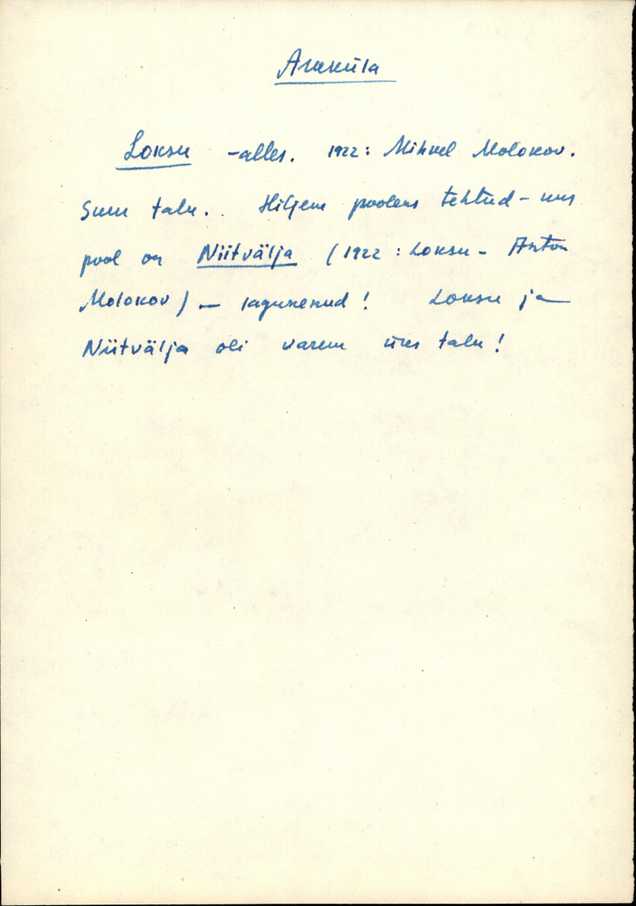 Araküla
Loksu - alles. 1922: Mihkel Molokov.
Suur talu. Hiljem pooleks tehtud - uus
pool on Niitvälja (1922: Loksu - Anton
Molokov) - lagunenud! Loksu ja
Niitvälja oli varem üks talu!